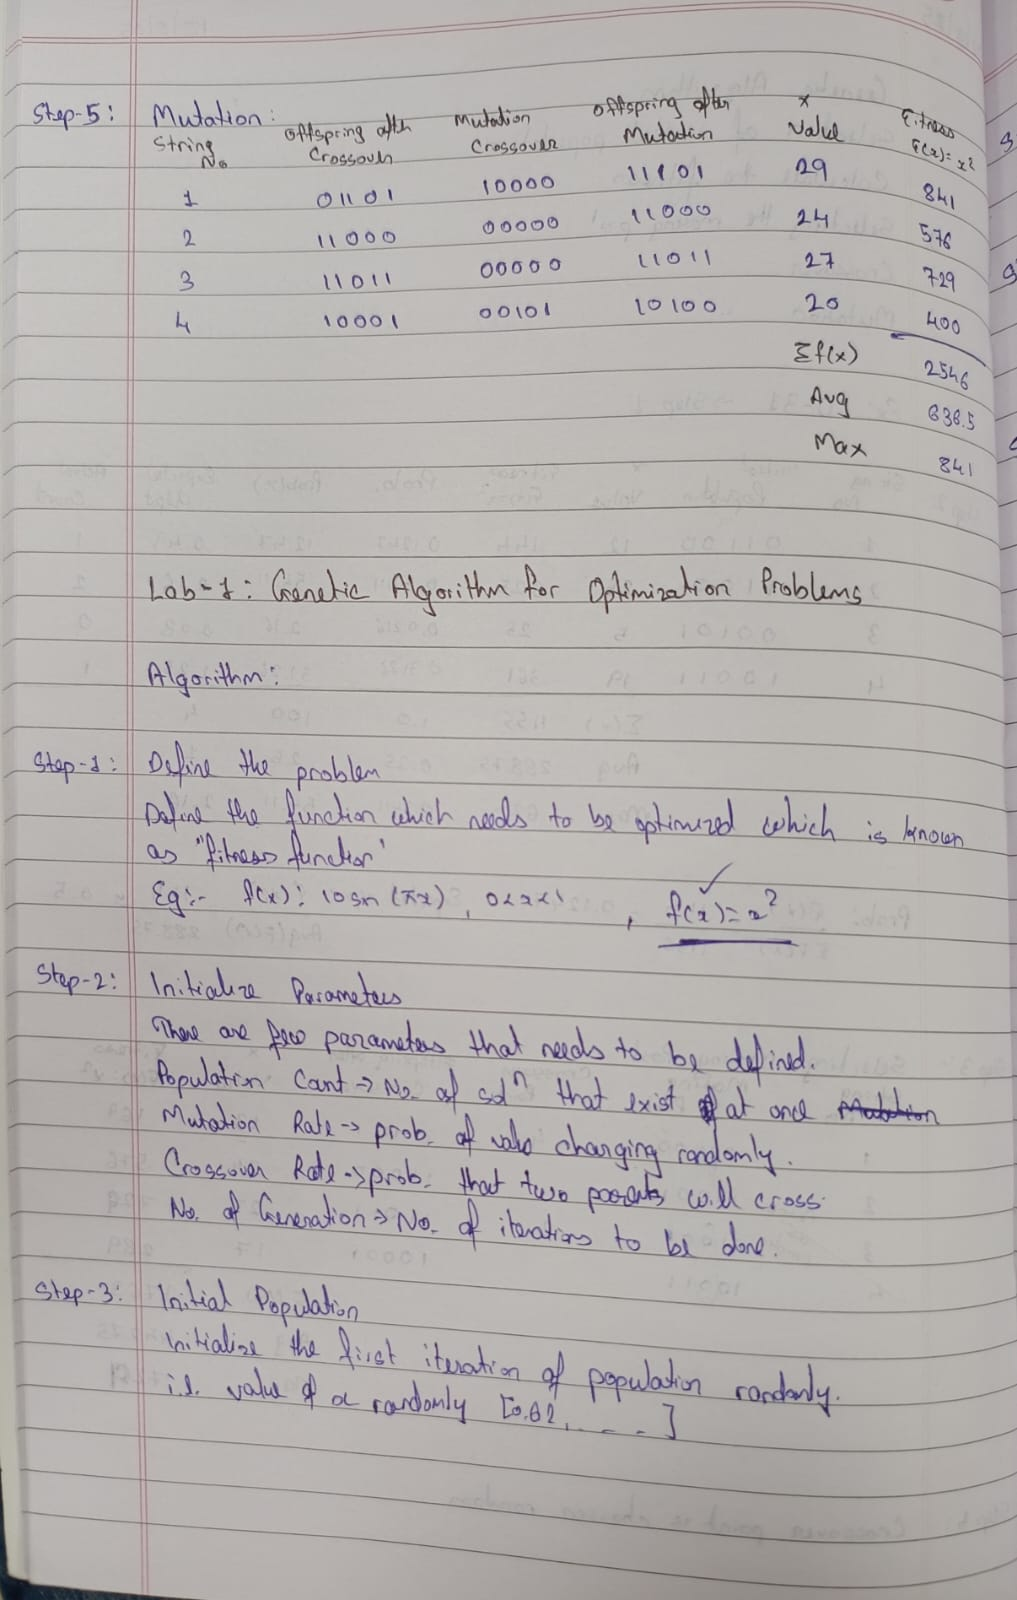 Step-5: Mutation:
String No. Offspring after Crossover Mutation Crossover Offspring after Mutation x Value Fitness F(x)=x²
1 01101 10000 11101 29 841
2 11000 00000 11000 24 576
3 11011 00000 11011 27 729
4 10001 00101 10100 20 400
Σf(x) 2546
Avg 636.5
Max 841
Lab-1: Genetic Algorithm for Optimization Problems
Algorithm:
Step-1: Define the problem
Define the function which needs to be optimized which is known
as "fitness function"
Eg:- f(x): 10sin(πx), 0<x<1, f(x)=x² ✓
Step-2: Initialize Parameters
There are few parameters that needs to be defined.
Population Count → No. of solⁿ that exist at once
Mutation Rate → prob. of value changing randomly.
Crossover Rate → prob. that two parents will cross.
No. of Generation → No. of iterations to be done.
Step-3: Initial Population
Initialize the first iteration of population randomly.
i.e. value of x randomly [0.62, - - - ]